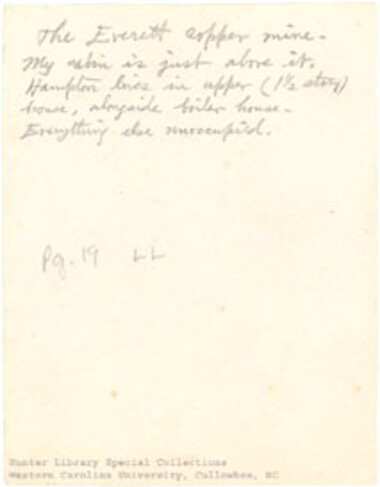 The Everett copper mine.
My cabin is just above it.
Hampton lives in upper (1½ story)
house, alongside boiler house.
Everything else unoccupied.
Pg. 19 LL
Hunter Library Special Collections
Western Carolina University, Cullowhee, NC